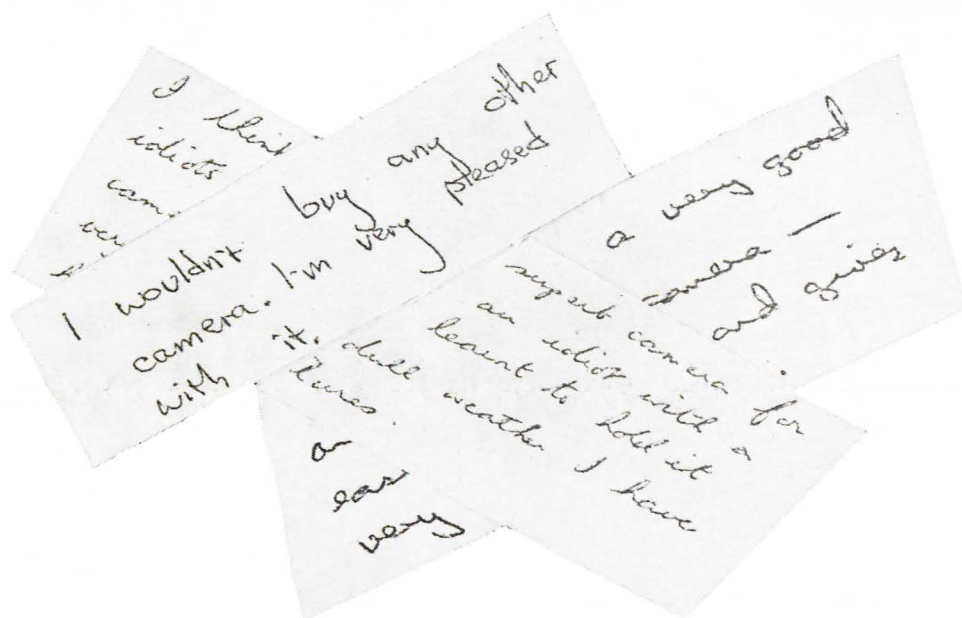 I think
idiots
cam
ver
I wouldn't buy any other
camera. I'm very pleased
with it.
a very good
camera —
and gives
superb camera for
an idiot with a
learnt to hold it
dull weather I have
an
eas
very